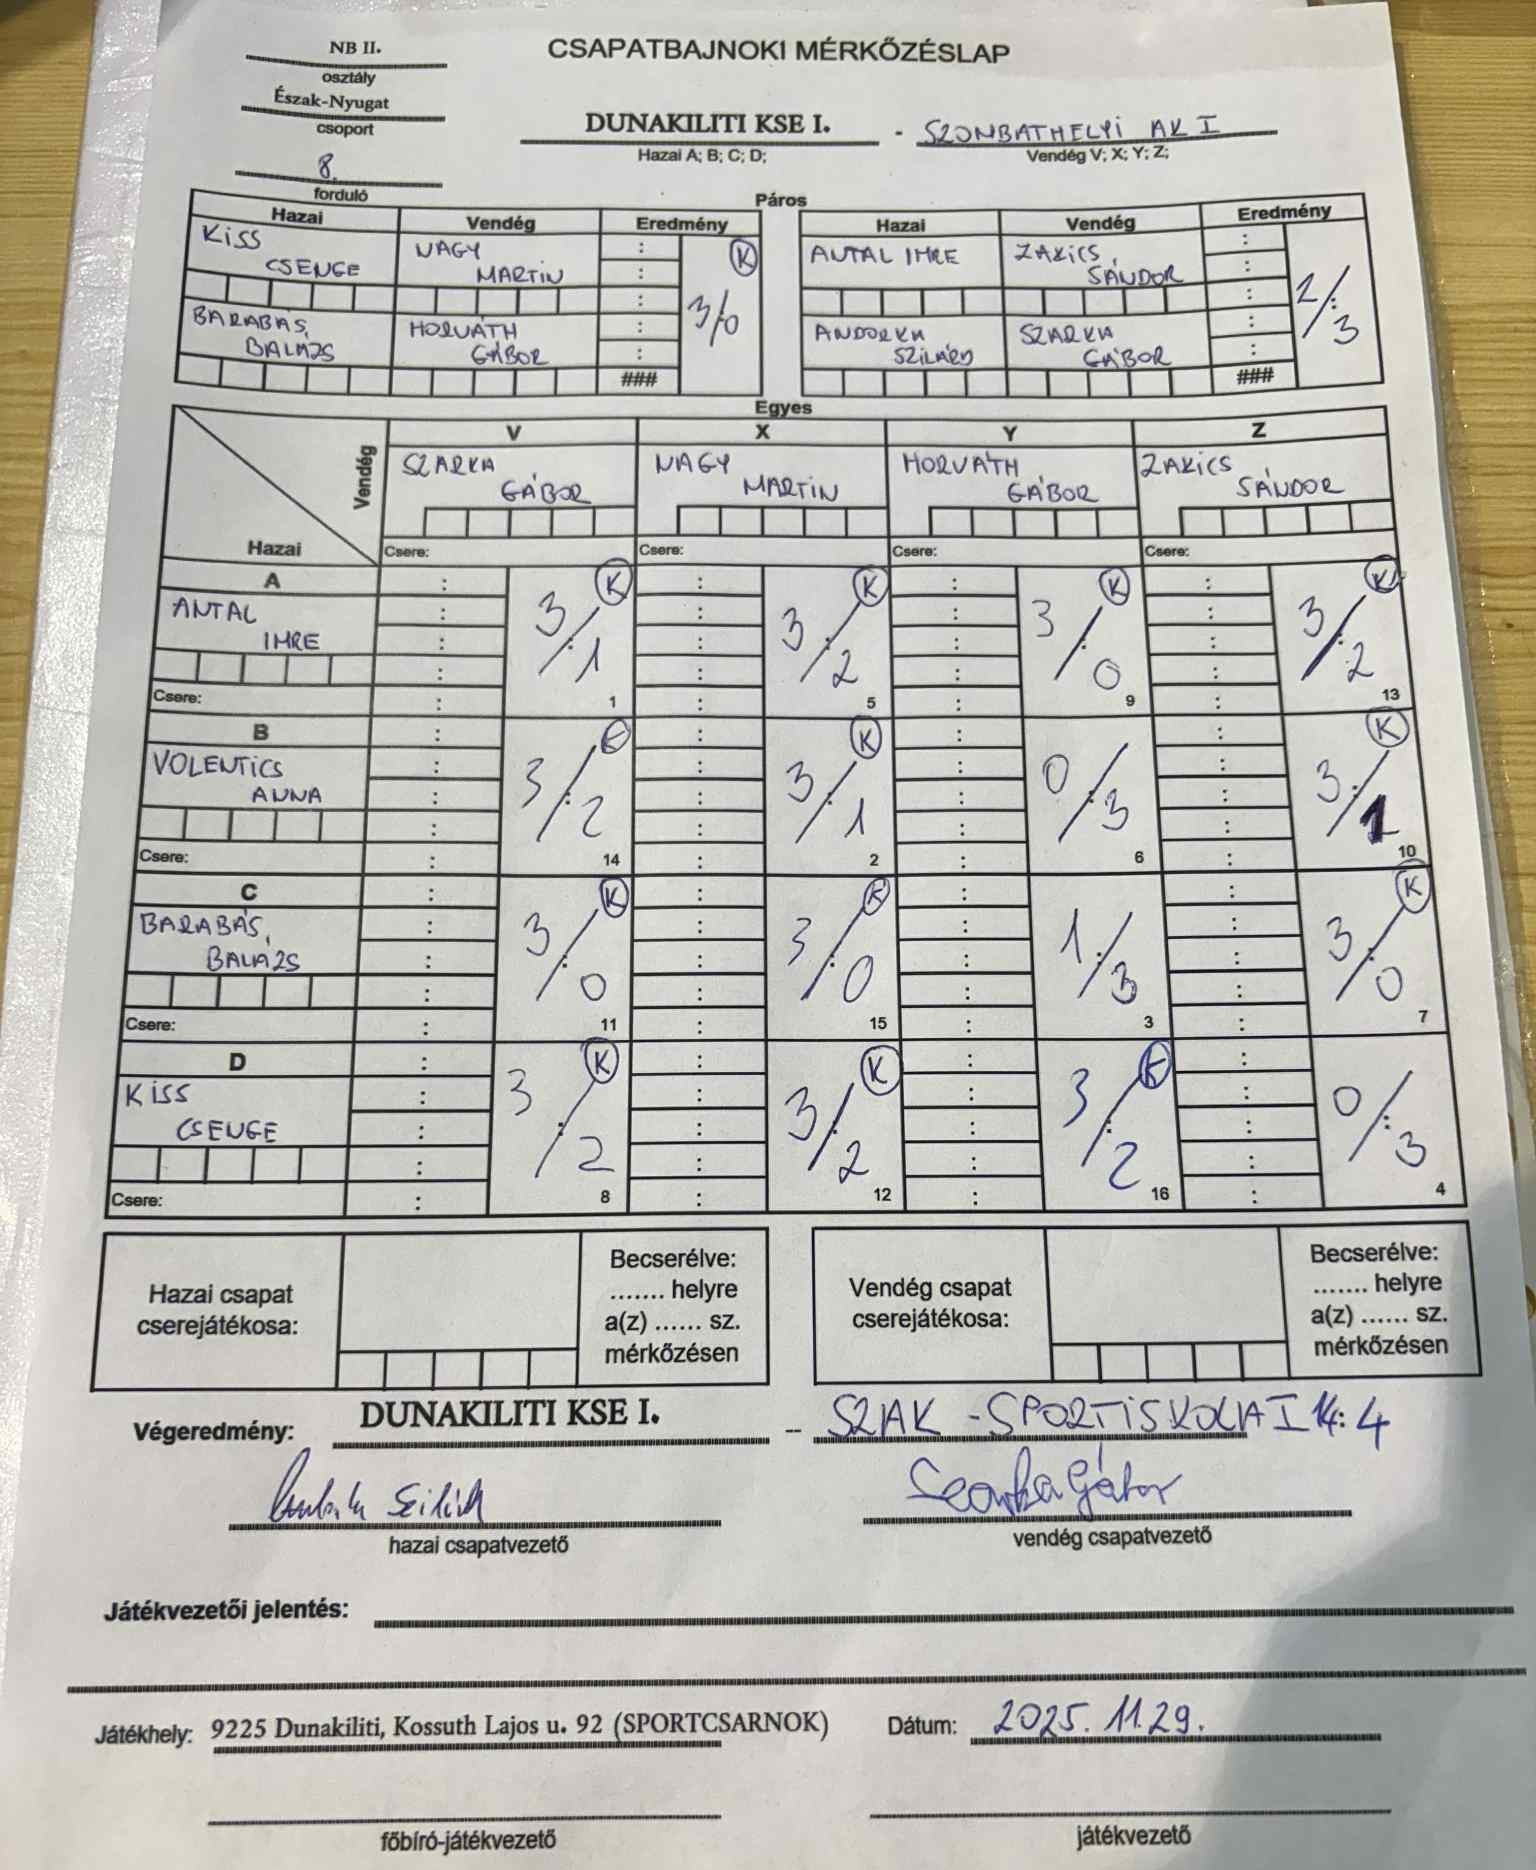 NB II.
osztály
Észak-Nyugat
csoport
8.
forduló
CSAPATBAJNOKI MÉRKŐZÉSLAP
DUNAKILITI KSE I. - SZOMBATHELYI AK I
Hazai A; B; C; D;
Vendég V; X; Y; Z;
Páros
Hazai Vendég Eredmény
KISS CSENGE
NAGY MARTIN
BARABÁS BALÁZS
HORVÁTH GÁBOR
###
3/0 K
Hazai Vendég Eredmény
ANTAL IMRE
ZAKICS SÁNDOR
ANDORKA SZILÁRD
SZARKA GÁBOR
###
2/3
Egyes
Vendég
Hazai
V X Y Z
SZARKA GÁBOR
NAGY MARTIN
HORVÁTH GÁBOR
ZAKICS SÁNDOR
Csere: Csere: Csere: Csere:
A
ANTAL IMRE
Csere:
3/1 K 1
3/2 K 5
3/0 K 9
3/2 K 13
B
VOLENTICS ANNA
Csere:
3/2 K 14
3/1 K 2
0/3 6
3/1 K 10
C
BARABÁS BALÁZS
Csere:
3/0 K 11
3/0 K 15
1/3 3
3/0 K 7
D
KISS CSENGE
Csere:
3/2 K 8
3/2 K 12
3/2 K 16
0/3 4
Hazai csapat cserejátékosa:
Becserélve:
....... helyre
a(z) ...... sz.
mérkőzésen
Vendég csapat cserejátékosa:
Becserélve:
....... helyre
a(z) ...... sz.
mérkőzésen
Végeredmény: DUNAKILITI KSE I. -- SZAK - SPORTISKOLA I 14:4
Szarka Gábor
hazai csapatvezető
vendég csapatvezető
Játékvezetői jelentés:
Játékhely: 9225 Dunakiliti, Kossuth Lajos u. 92 (SPORTCSARNOK)
Dátum: 2025. 11.29.
főbíró-játékvezető
játékvezető